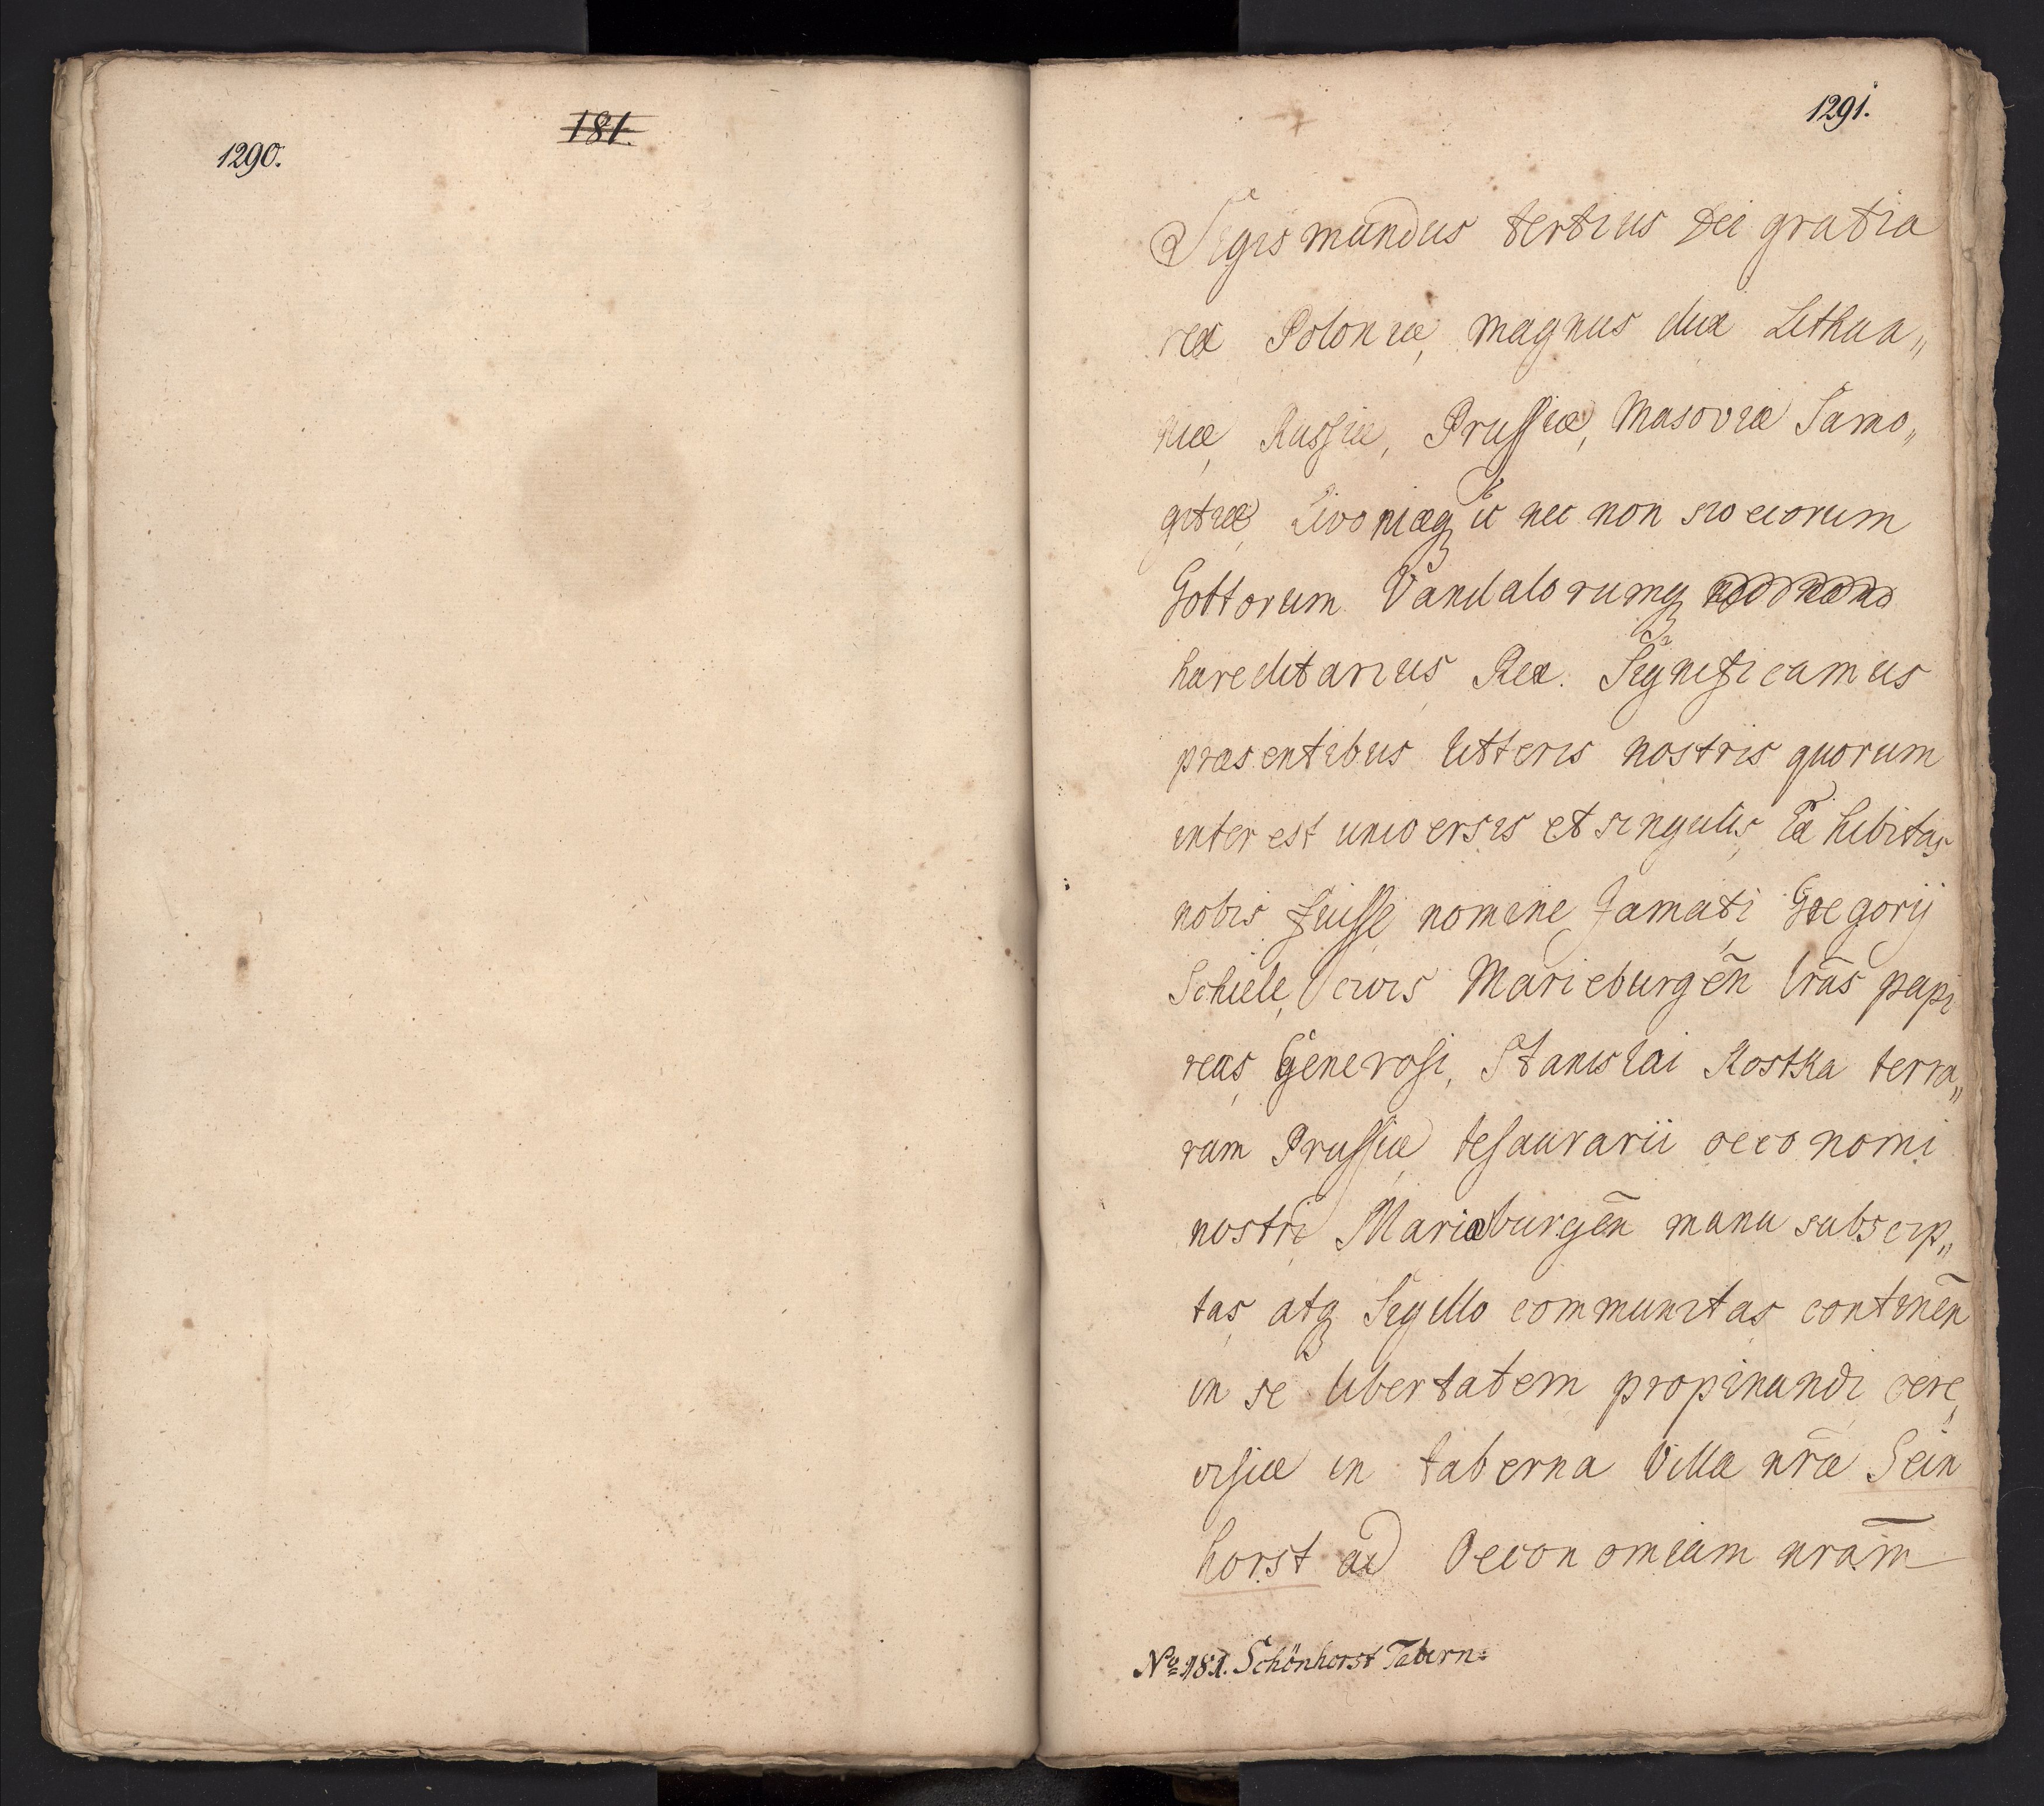 1290.
181.
1291.
Sigismundus tertius dei gratia
rex Poloniæ, magnus dux Lithua„
niæ, Russiæ, Prussiæ, Masoviæ Samo„
gitiæ, Livoniæq; et nec non svecorum
Gottorum Vandalorumq;
hæreditarius Rex. Significamus
præsentibus litteris nostris quorum
interest universis et singulis, Exhibitas
nobis fuisse nomine famati Gregorij
Schiele, civis Marieburgen̄ lrãs papi
reas, Generosi, Stanislai Kostka terra„
rum Prussiæ tesaurarii oeconomi
nostri Mariaburgen̄ manu subscrip„
tas, atq; Sigillo communitas continen̄
in se libertatem propinandi cere„
visiæ in taberna Villæ nr̄æ Sein
horst ad Oeconomiam nram̄
No 181. Schönhorst Tabern: